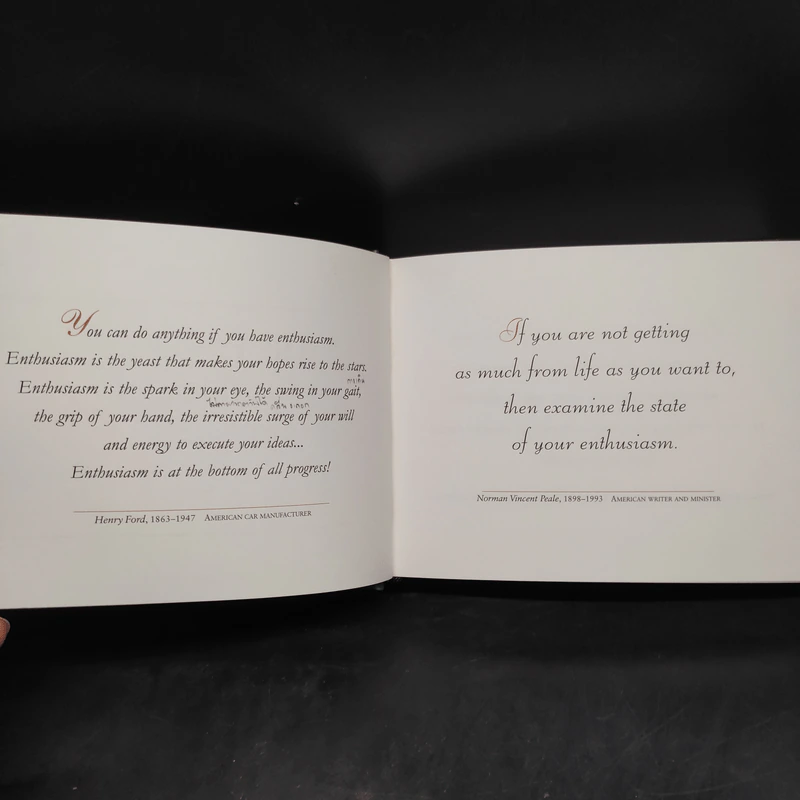 You can do anything if you have enthusiasm.
Enthusiasm is the yeast that makes your hopes rise to the stars.
Enthusiasm is the spark in your eye, the swing in your gait,
the grip of your hand, the irresistible surge of your will
and energy to execute your ideas...
Enthusiasm is at the bottom of all progress!
Henry Ford, 1863–1947 AMERICAN CAR MANUFACTURER
If you are not getting
as much from life as you want to,
then examine the state
of your enthusiasm.
Norman Vincent Peale, 1898–1993 AMERICAN WRITER AND MINISTER